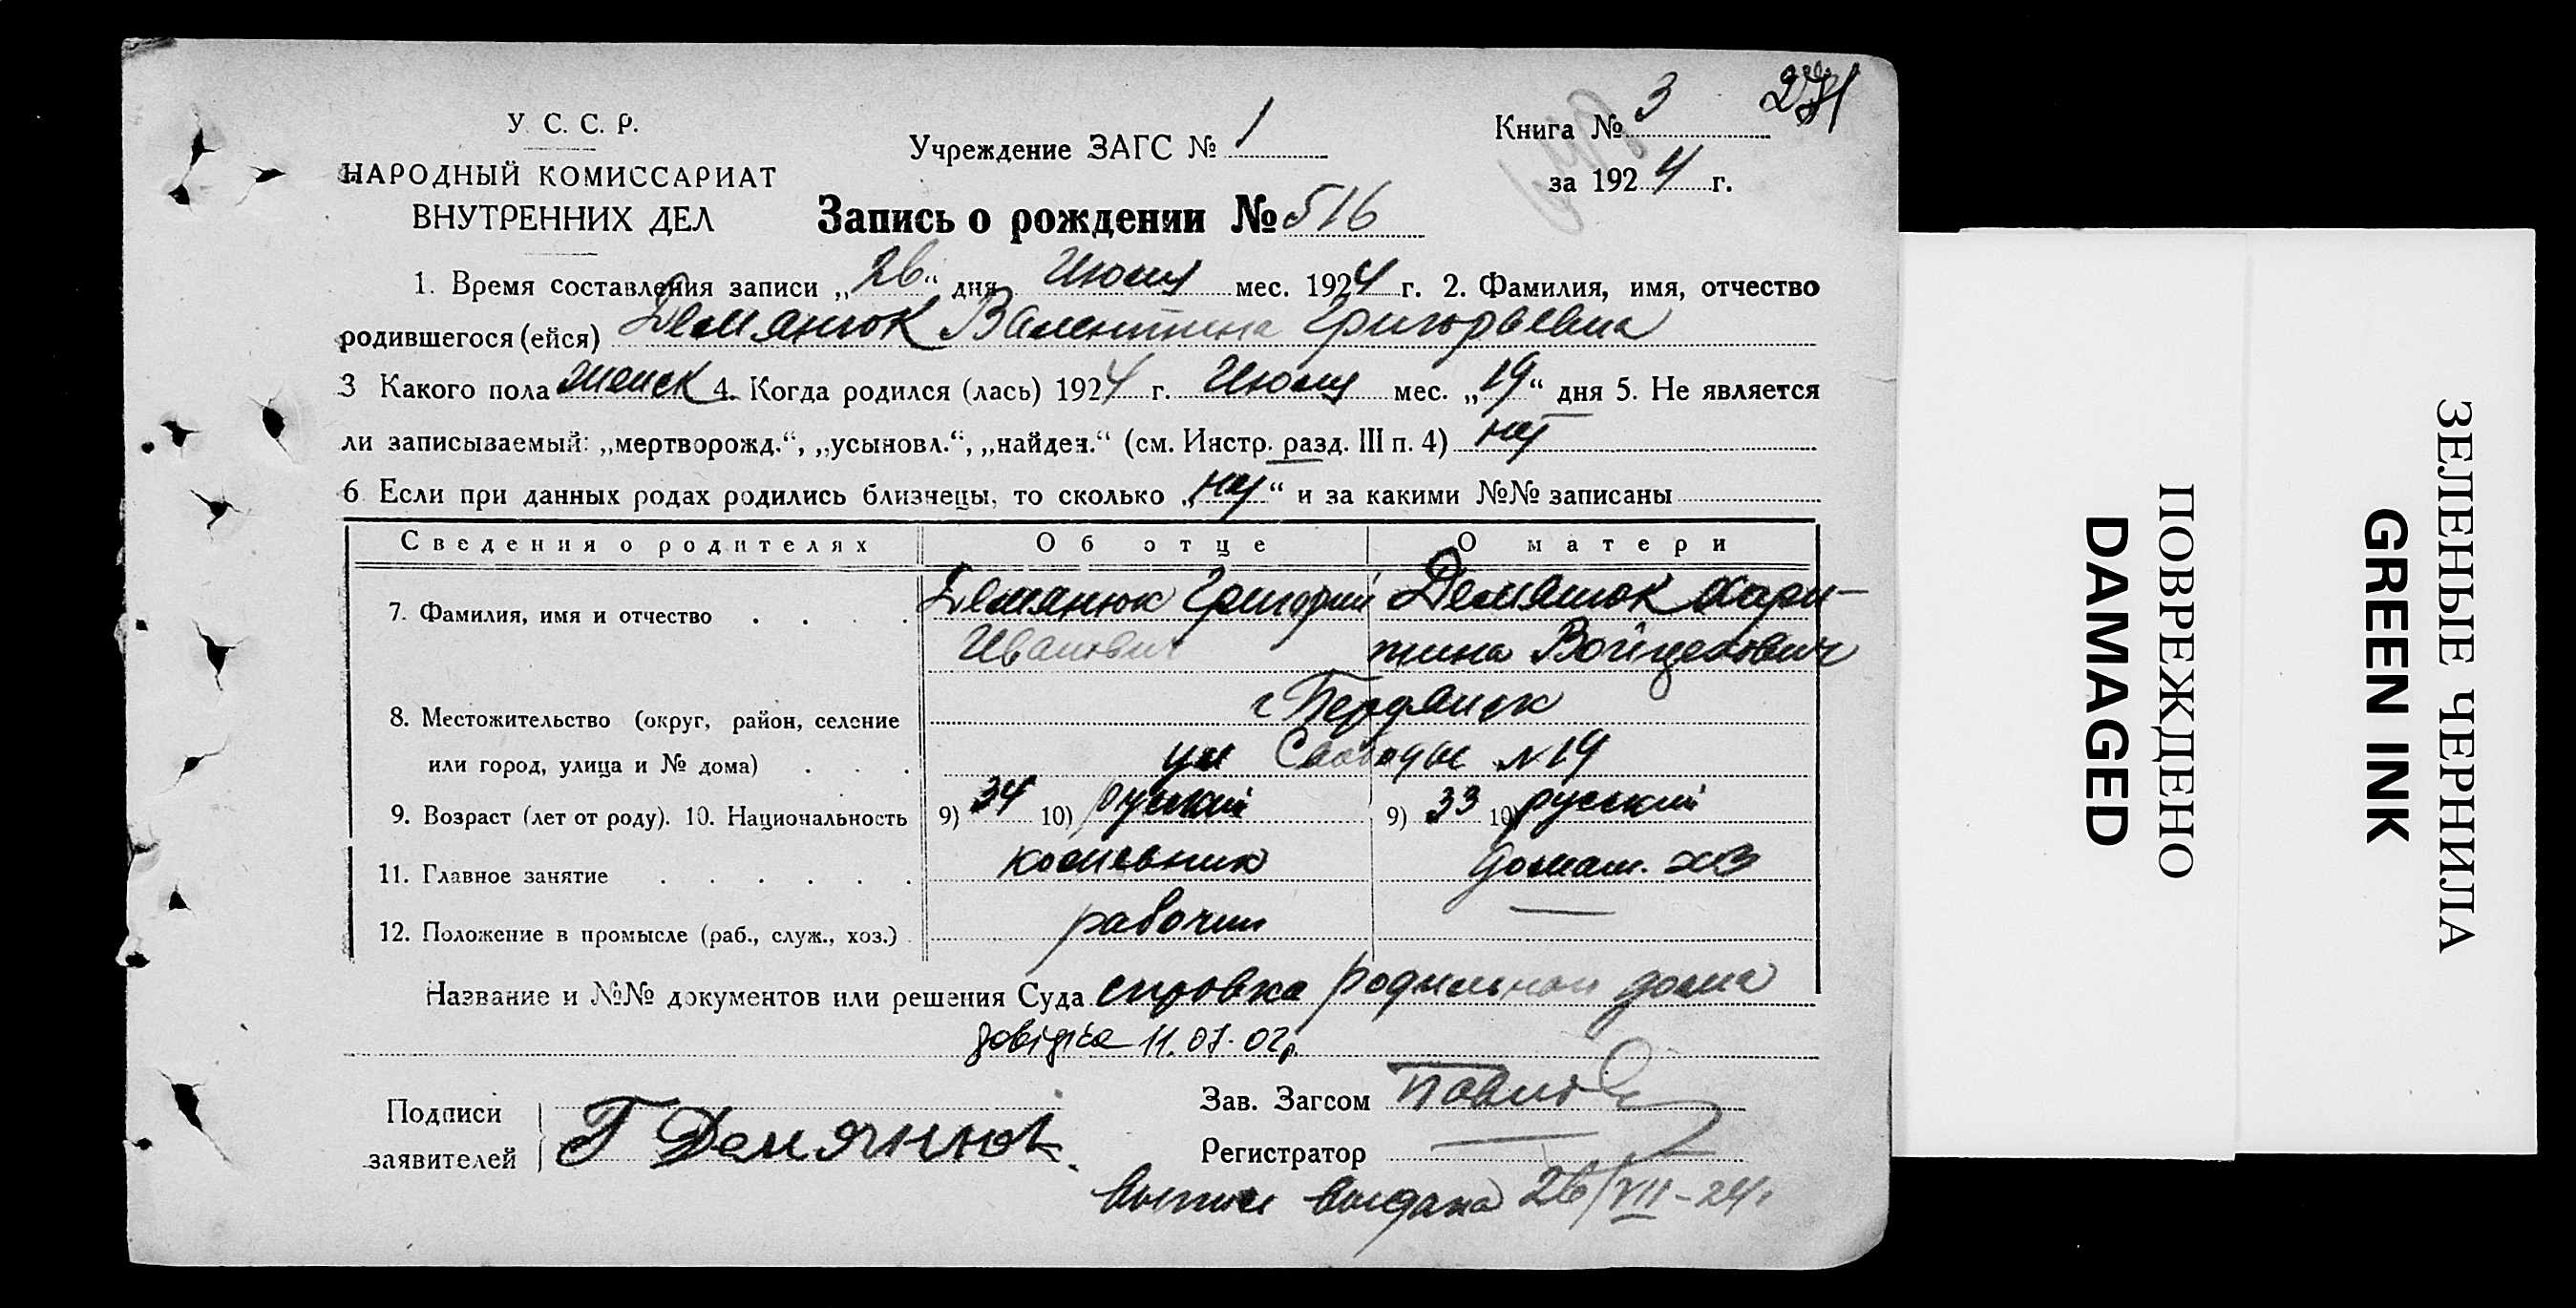 У. С. С. Р.
НАРОДНЫЙ КОМИССАРИАТ
ВНУТРЕННИХ ДЕЛ
Учреждение ЗАГС № 1
Книга № 3
271
за 1924 г.
Запись о рождении № 516
1. Время составления записи „26“ дня Июля мес. 1924 г. 2. Фамилия, имя, отчество
родившегося (ейся) Демянюк Валентина Григорьевна
3 Какого пола женск 4. Когда родился (лась) 1924 г. Июля мес. „19“ дня 5. Не является
ли записываемый: „мертворожд.“, „усыновл.“, „найден.“ (см. Инстр. разд. III п. 4) нет
6 Если при данных родах родились близнецы, то сколько „нет“ и за какими №№ записаны
Сведения о родителях Об отце О матери
7. Фамилия, имя и отчество Демянюк Григорий Демянюк Хари-
Иванович тина Войцехович
8. Местожительство (округ, район, селение г Бердянск
или город, улица и № дома) ул Свободы № 19
9. Возраст (лет от роду). 10. Национальность 9) 34 10) русский 9) 33 10) русский
11. Главное занятие кожевник домаш. хоз
12. Положение в промысле (раб., служ., хоз.) рабочий —
Название и №№ документов или решения Суда справка родильного дома
довідка 11.07.02р.
Подписи
заявителей Г Демянюк
Зав. Загсом
Регистратор
выпись выдана 26/VII-24г
ПОВРЕЖДЕНО
DAMAGED
ЗЕЛЕНЫЕ ЧЕРНИЛА
GREEN INK